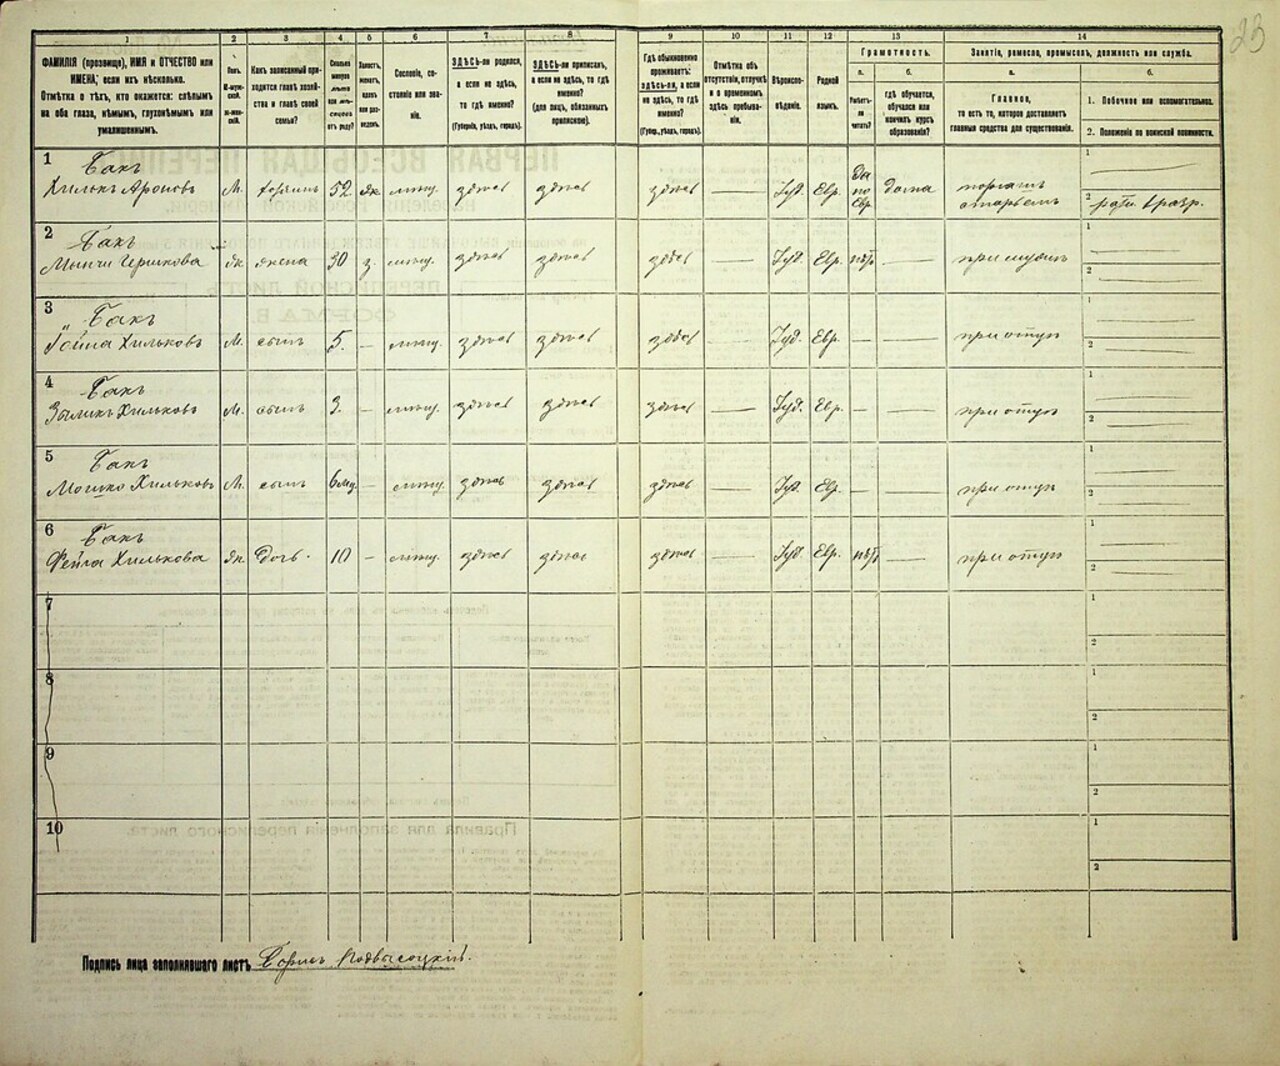 23
1
2
3
4
5
6
7
8
9
10
11
12
13
14
ФАМИЛІЯ (прозвище), ИМЯ и ОТЧЕСТВО или
ИМЕНА, если ихъ нѣсколько.
Отмѣтка о тѣхъ, кто окажется: слѣпымъ
на оба глаза, нѣмымъ, глухонѣмымъ или
умалишеннымъ.
Полъ.
М-муж-
ской.
Ж-жен-
скій.
Какъ записанный при-
ходится главѣ хозяй-
ства и главѣ своей
семьи?
Сколько
минуло
лѣтъ
или мѣ-
сяцевъ
отъ роду?
Холостъ,
женатъ,
вдовъ
или раз-
веденъ.
Сословіе, со-
стояніе или зва-
ніе.
ЗДѢСЬ-ли родился,
а если не здѣсь,
то гдѣ именно?
(Губернія, уѣздъ, городъ).
ЗДѢСЬ-ли приписанъ,
а если не здѣсь, то гдѣ
именно?
(для лицъ, обязанныхъ
припискою).
Гдѣ обыкновенно
проживаетъ:
здѣсь-ли, а если
не здѣсь, то гдѣ
именно?
(Губерн., уѣздъ, городъ).
Отмѣтка объ
отсутствіи, отлучкѣ
и о временномъ
здѣсь пребыва-
ніи.
Вѣроиспо-
вѣданіе.
Родной
языкъ.
Грамотность.
а.
б.
Умѣетъ-
ли
читать?
гдѣ обучается,
обучался или
кончилъ курсъ
образованія?
Занятіе, ремесло, промыселъ, должность или служба.
а.
б.
Главное,
то есть то, которое доставляетъ
главныя средства для существованія.
1. Побочное или вспомогательное.
2. Положеніе по воинской повинности.
1
Бакъ
Хилькъ Ароновъ М. хозяинъ 52. жн. мѣщ. здѣсь здѣсь здѣсь — Іуд. Евр. да по Евр. дома
1 —
2
2
Бакъ
жн. жена 30 з. мѣщ. здѣсь здѣсь здѣсь — Іуд. Евр. нѣт — при мужѣ
1 —
2 —
3
Бакъ
Хильковъ М. сынъ 5. — мѣщ. здѣсь здѣсь здѣсь — Іуд. Евр. — — при отцѣ
1 —
2 —
4
Бакъ
Хильковъ М. сынъ 3. — мѣщ. здѣсь здѣсь здѣсь — Іуд. Евр. — — при отцѣ
1 —
2 —
5
Бакъ
Мошко Хильковъ М. сынъ — мѣщ. здѣсь здѣсь здѣсь — Іуд. Евр. — — при отцѣ
1 —
2 —
6
Бакъ
Фейга Хилькова жн. дочь. 10 — мѣщ. здѣсь здѣсь здѣсь — Іуд. Евр. нѣт — при отцѣ
1 —
2 —
7
1
2
8
1
2
9
1
2
10
1
2
Подпись лица заполнявшаго листъ Борисъ Подвысоцкій.